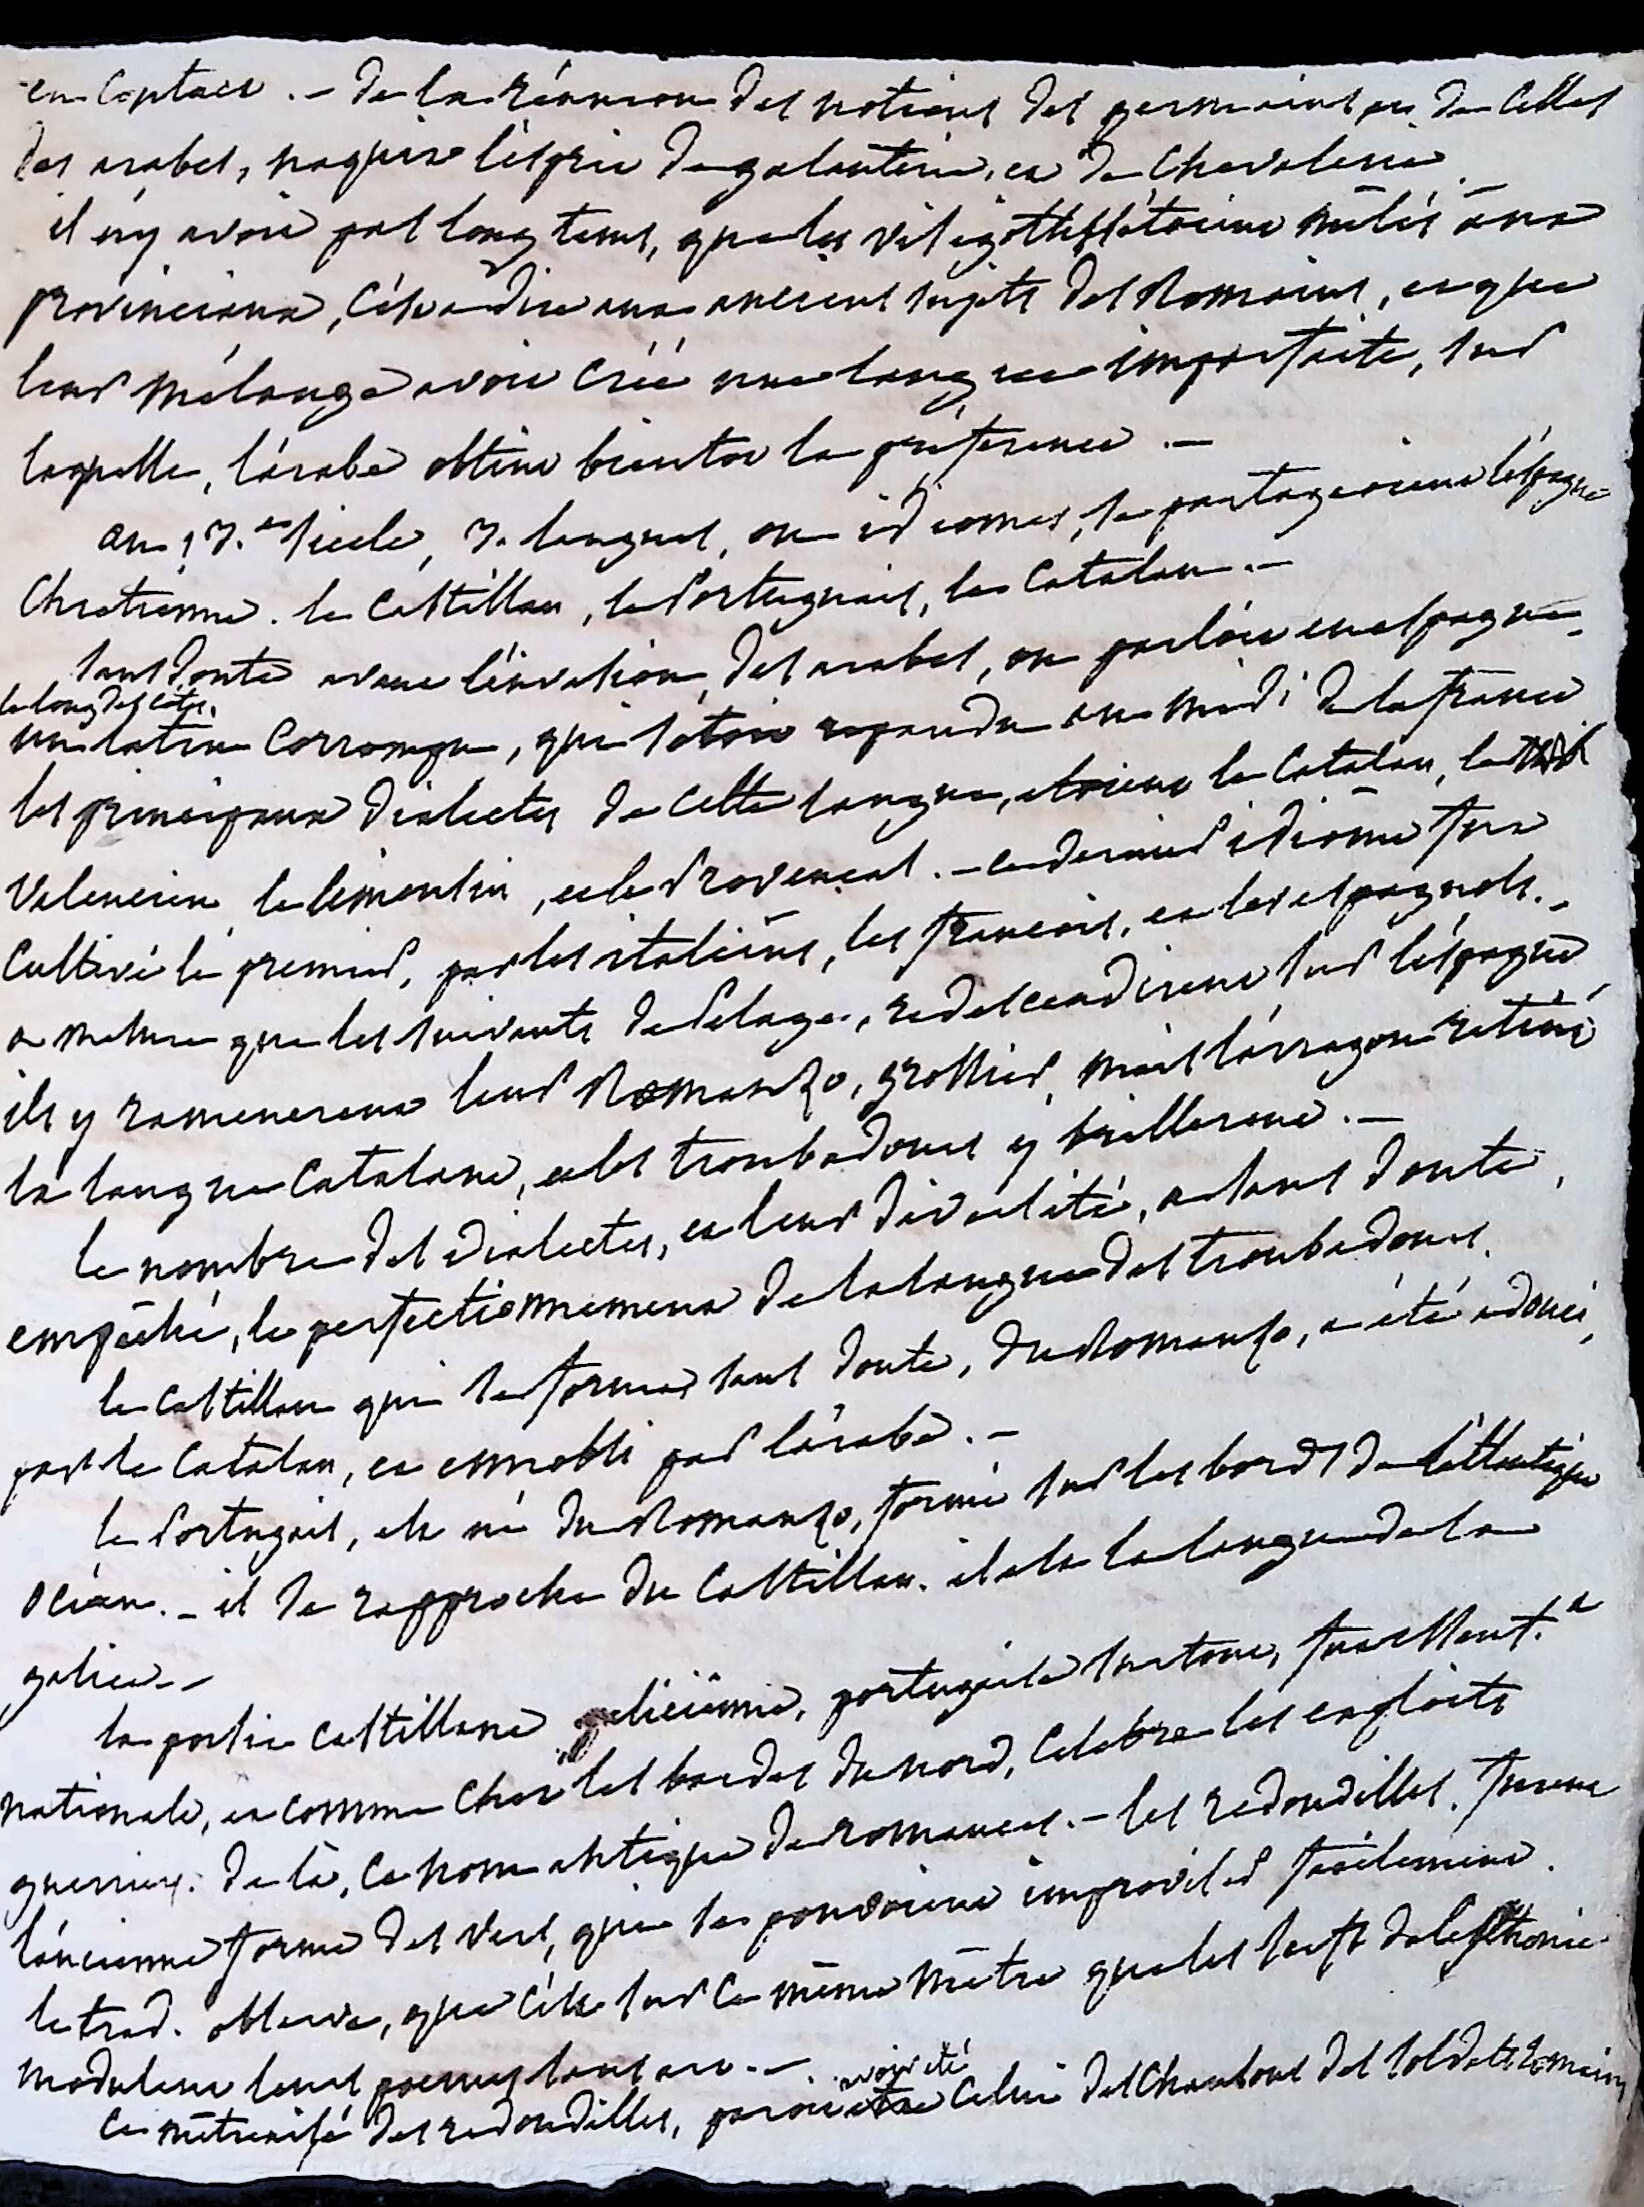 en Captacer. – de la réunion des notions des germains et de celles
des arabes, naquit l'esprit de galanterie, et de chevalerie.
il n'y avoit pas long tems, que les visigoths s'étoient mêlés aux
provinciaux, c'est a dire aux anciens sujets des Romains, et que
leur mélange avoit créé une langue imparfaite, sur
laquelle, l'arabe obtint bientot la préférence. –
au 13.e siecle, 3. langues, ou idiomes, se partageoient l'espagne
Chretienne. le Castillan, le Portugais, le Catalan. –
sans doute avant l'invasion des arabes, on parloit en espagne
le long des côtes,
un latin Corrompu, qui s'étoit repandu au midi de la france
les principaux dialectes de cette langue, etoient le Catalan, le
Valencien le limousin, et le Provençal. – ce dernier idiome fut
Cultivé le premier, par les italiens, les francois, et les espagnols. –
a mesure que les suivants de Pelage, redescendirent sur l'espagne
ils y ramenerent leur Romanzo, grossier, mais l'arragon retint
la langue Catalane, et les troubadours y brillerent. –
le nombre des dialectes, et leur diversité, a sans doute,
empêché, le perfectionnement de la langue des troubadours.
le Castillan qui se forma sans doute, du Romanzo, a été adouci,
par le Catalan, et ennobli par l'arabe. –
le Portugais, est né du Romanzo, formé sur les bords de l'atlantique
océan. – il se rapproche du Castillan. il est la langue de la
galice. –
la poësie castillane galicienne, portugaise surtout, fut essent.t
nationale, et comme chez les bardes du nord, Celebre les exploits
guerriers. de là, ce nom antique de romances. – les redondilles. furent
l'ancienne forme des vers, qui se pouvoient improviser facilement.
le trad. observe, que c'est sur ce même mètre que les serfs de l'esthonie
modulent leurs poemes sans art. –
avoir été
ce mètre usé des redondilles, paroit celui des Chansons des soldats romains